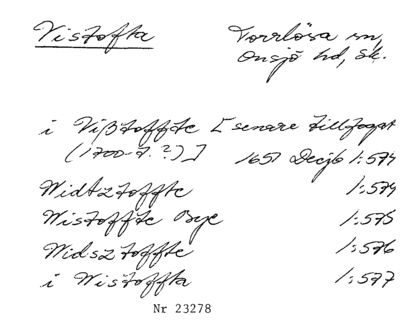 Vistofta Torrlösa sn,
Onsjö hd, Sk.
i Vißtoffte [senare tillfogat
(1700-t. ?)] 1651 Decjb 1:574
Widtztoffte 1:574
Wistoffte Bye 1:575
Widsztoffte 1:576
i Wistoffta 1:577
Nr 23278